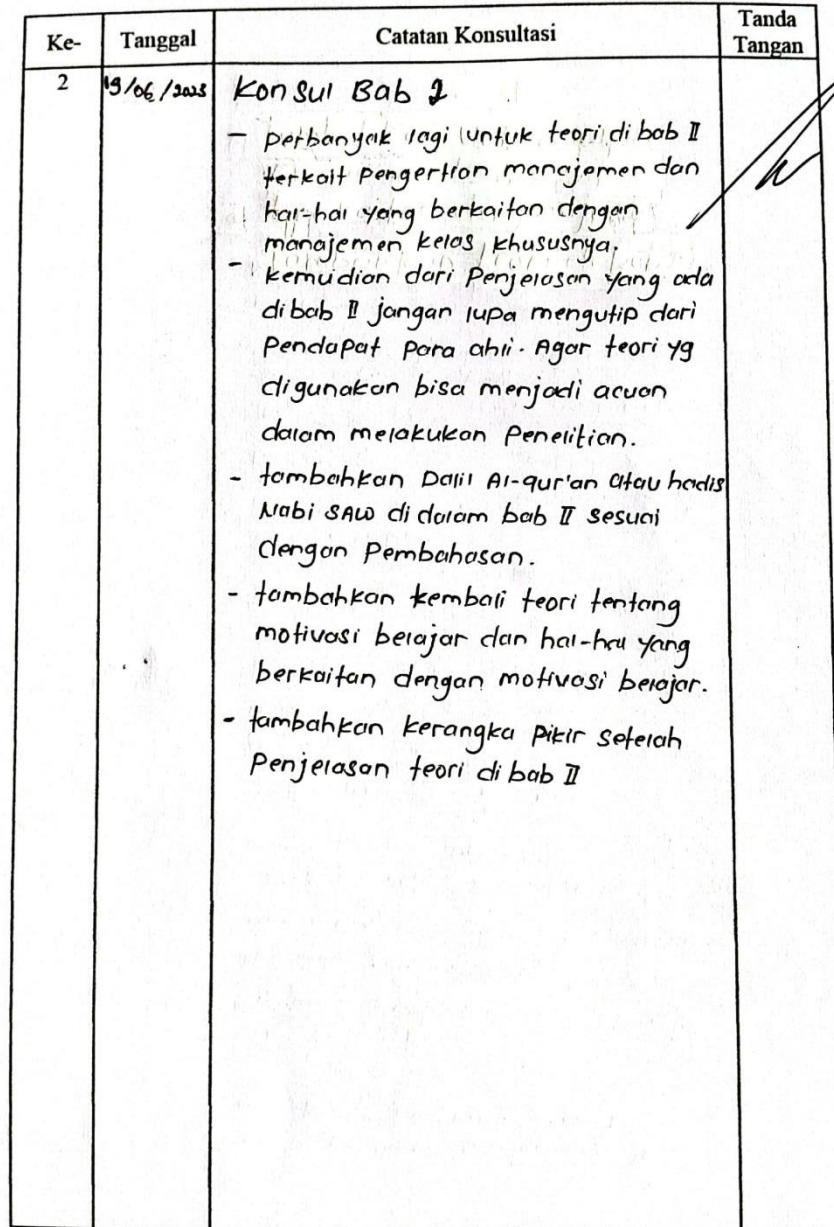 Ke- Tanggal Catatan Konsultasi Tanda Tangan
2 19/06/2025 Konsul Bab 2
- perbanyak lagi untuk teori di bab II
terkait pengertian manajemen dan
hal-hal yang berkaitan dengan
manajemen kelas, khususnya.
- kemudian dari Penjelasan yang ada
di bab II jangan lupa mengutip dari
Pendapat para ahli. Agar teori yg
digunakan bisa menjadi acuan
dalam melakukan Penelitian.
- tambahkan Dalil Al-qur'an atau hadis
Nabi SAW di dalam bab II sesuai
dengan Pembahasan.
- tambahkan kembali teori tentang
motivasi belajar dan hal-hal yang
berkaitan dengan motivasi belajar.
- tambahkan kerangka Pikir setelah
Penjelasan teori di bab II